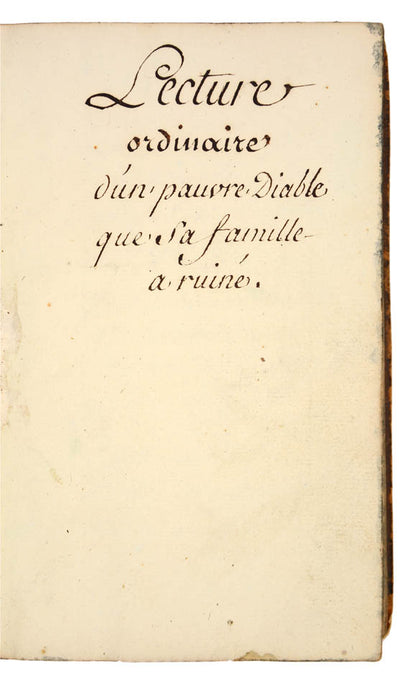 Lecture
ordinaire
d'un pauvre Diable
que Sa famille
a ruiné.